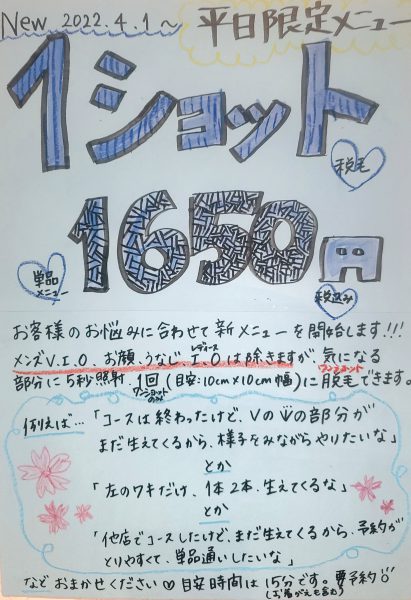 New 2022.4.1〜 平日限定メニュー
1ショット
脱毛
1650円
単品
メニュー
税込み
お客様のお悩みに合わせて新メニューを開始します!!!
メンズV.I.O、お顔、うなじ、レディースI、Oは除きますが、気になる
部分に5秒照射、1回(目安:10cm×10cm幅)にワンショット脱毛できます。
ワンショットのみ
例えば…「コースは終わったけど、Vの の部分が
まだ生えてくるから、様子をみながらやりたいな」
とか
「左のワキだけ、1本2本、生えてくるな」
とか
「他店でコースしたけど、まだ生えてくるから、予約が
とりやすくて、単品通いしたいな」
などおまかせください♡目安時間は15分です。要予約
(お着がえも含む)